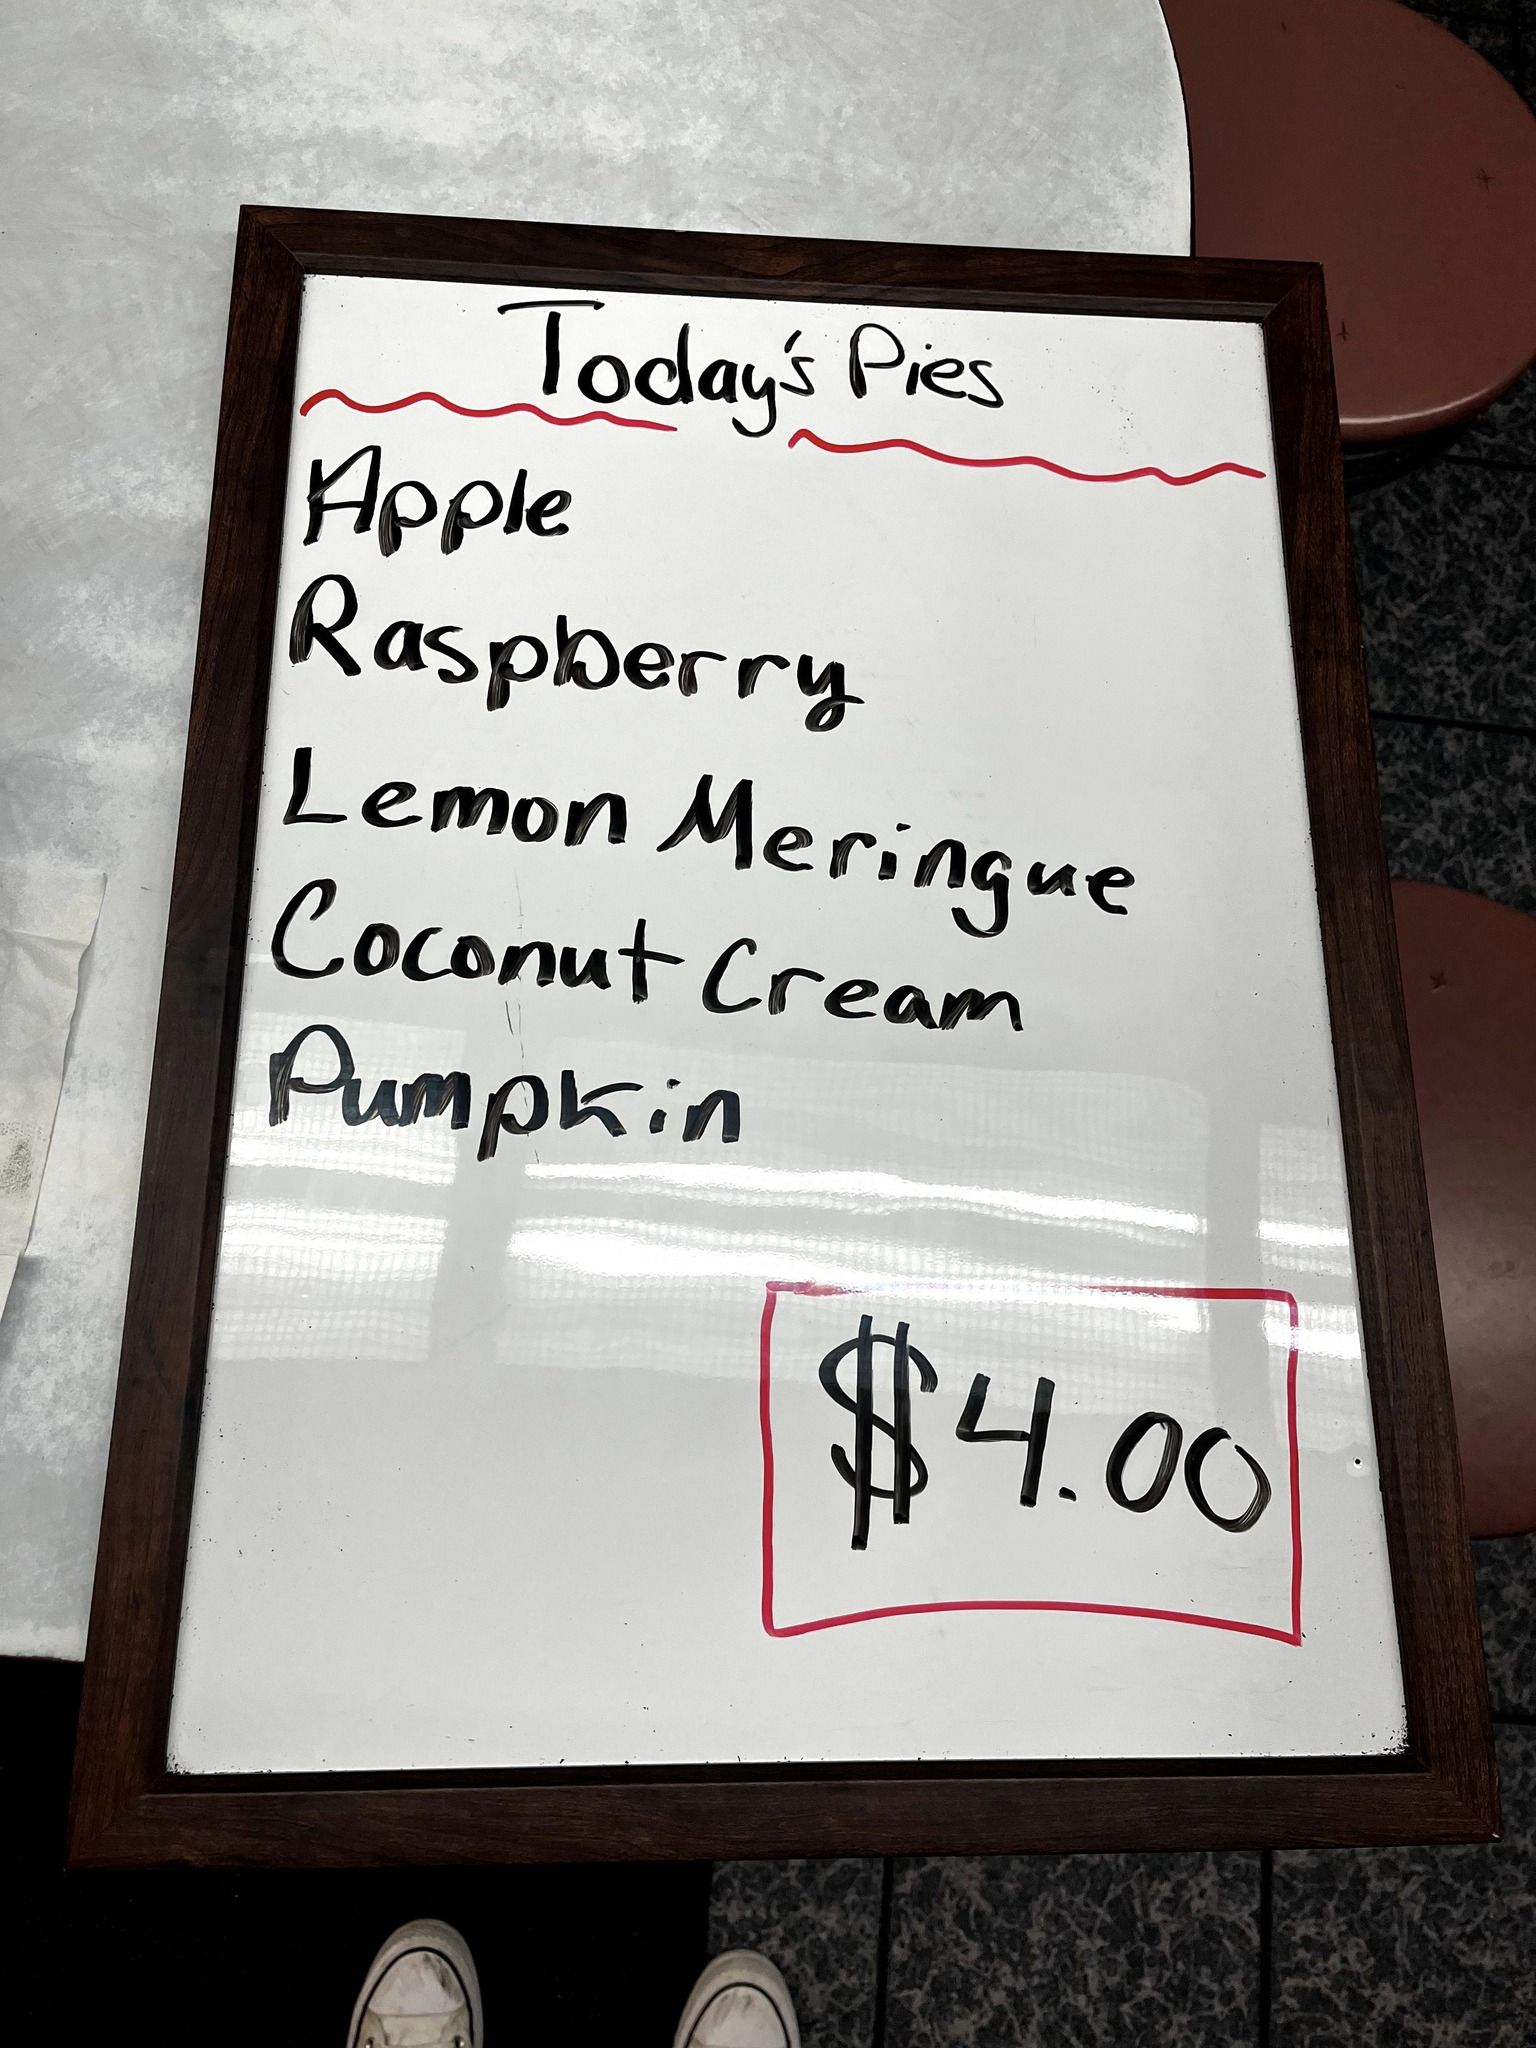 Today's Pies
Apple
Raspberry
Lemon Meringue
Coconut Cream
Pumpkin
$4.00